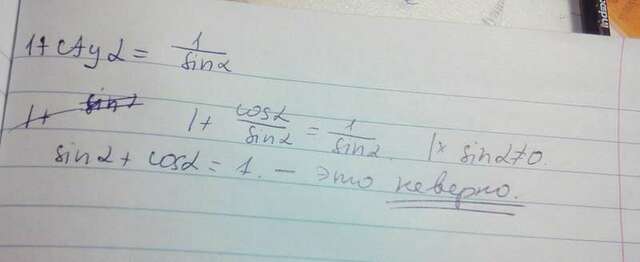 1+ctgα = 1/sinα
1+ sinα 1+ cosα/sinα = 1/sinα. |× sinα≠0.
sinα + cosα = 1. – это неверно.